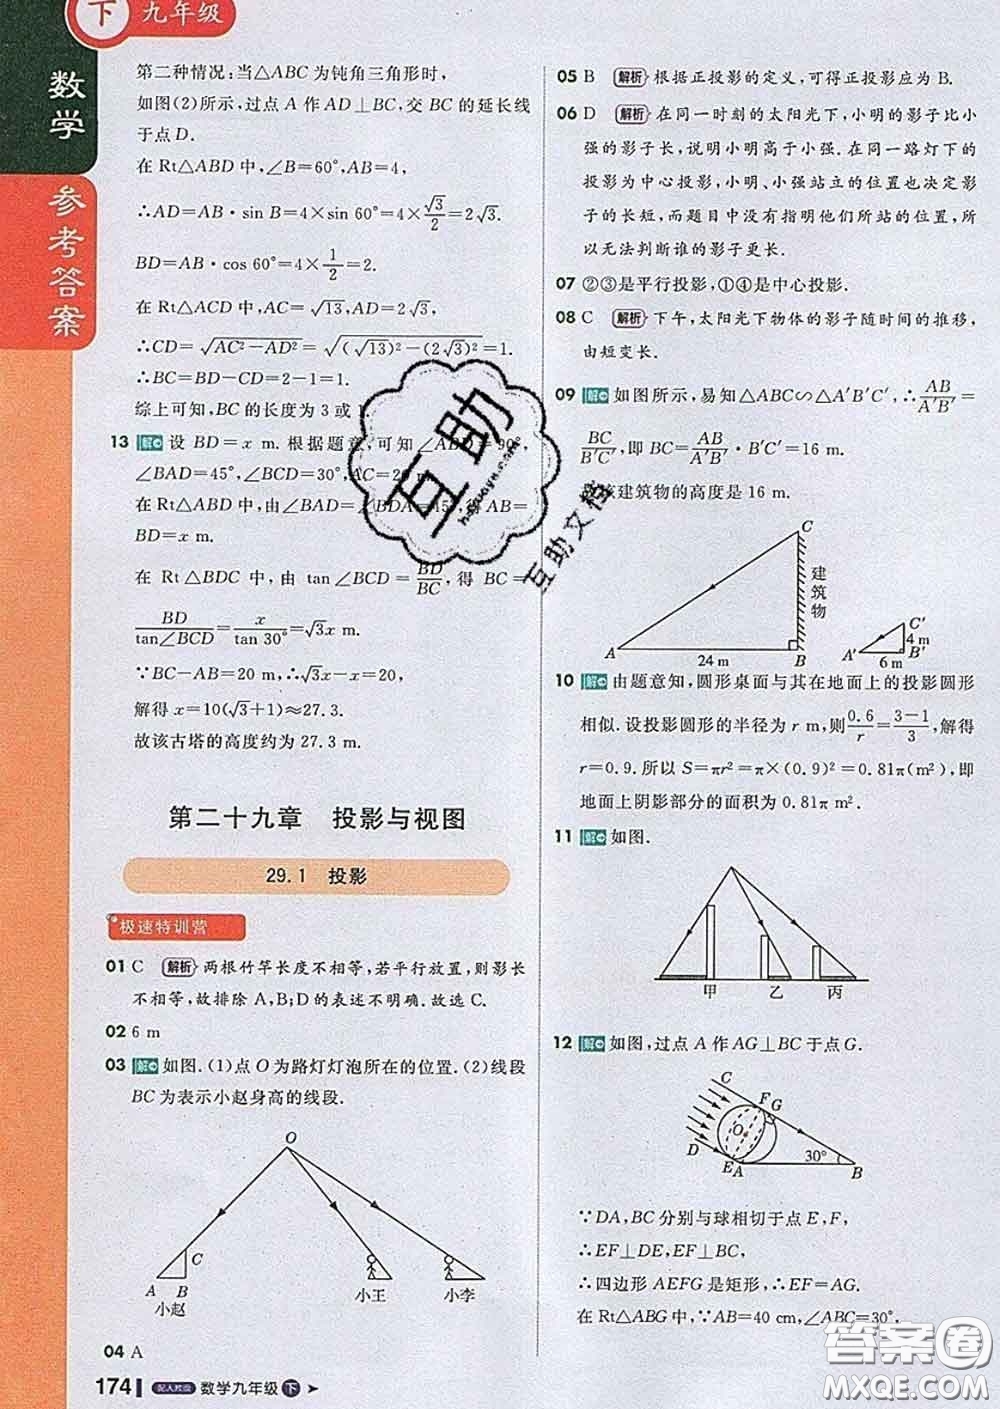 下 九年级
数学
参考答案
第二种情况:当△ABC为钝角三角形时,
如图(2)所示,过点A作AD⊥BC,交BC的延长线
于点D.
在Rt△ABD中,∠B=60°,AB=4,
∴AD=AB·sin B=4×sin 60°=4×√3/2=2√3.
BD=AB·cos 60°=4×1/2=2.
在Rt△ACD中,AC=√13,AD=2√3,
∴CD=√(AC²-AD²)=√((√13)²-(2√3)²)=1.
∴BC=BD-CD=2-1=1.
综上可知,BC的长度为3或1.
13 解 设BD=x m.根据题意,可知∠ABD=90°,
∠BAD=45°,∠BCD=30°,AC=20 m.
在Rt△ABD中,由∠BAD=∠BDA=45°,得AB=
BD=x m.
在Rt△BDC中,由tan∠BCD=BD/BC,得BC=
BD/tan∠BCD=x/tan 30°=√3x m.
∵BC-AB=20 m,∴√3x-x=20,
解得x=10(√3+1)≈27.3.
故该古塔的高度约为27.3 m.
第二十九章 投影与视图
29.1 投影
极速特训营
01 C 解析 两根竹竿长度不相等,若平行放置,则影长
不相等,故排除A,B;D的表述不明确.故选C.
02 6 m
03 解 如图.(1)点O为路灯灯泡所在的位置.(2)线段
BC为表示小赵身高的线段.
O
C
A B
小赵 小王 小李
04 A
174 配人教版 数学九年级 下
05 B 解析 根据正投影的定义,可得正投影应为B.
06 D 解析 在同一时刻的太阳光下,小明的影子比小
强的影子长,说明小明高于小强.在同一路灯下的
投影为中心投影,小明、小强站立的位置也决定影
子的长短,而题目中没有指明他们所站的位置,所
以无法判断谁的影子更长.
07 ②③是平行投影,①④是中心投影.
08 C 解析 下午,太阳光下物体的影子随时间的推移,
由短变长.
09 解 如图所示,易知△ABC∽△A′B′C′,∴AB/A′B′=
BC/B′C′,即BC=AB/A′B′·B′C′=16 m.
该建筑物的高度是16 m.
C
建筑物
A 24 m B
C′
4 m
A′ 6 m B′
10 解 由题意知,圆形桌面与其在地面上的投影圆形
相似.设投影圆形的半径为r m,则0.6/r=(3-1)/3,解得
r=0.9.所以S=πr²=π×(0.9)²=0.81π(m²),即
地面上阴影部分的面积为0.81π m².
11 解 如图.
甲 乙 丙
12 解 如图,过点A作AG⊥BC于点G.
C
F G
O
D
E A 30° B
∵DA,BC分别与球相切于点E,F,
∴EF⊥DE,EF⊥BC,
∴四边形AEFG是矩形,∴EF=AG.
在Rt△ABG中,∵AB=40 cm,∠ABC=30°,
互助
互助文档
答案圈
MXQE.COM